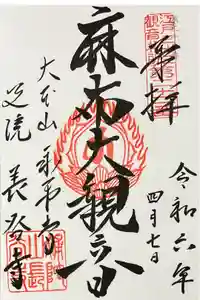 奉拝
令和六年
四月七日
麻布大観音
大本山永平寺
別院長谷寺